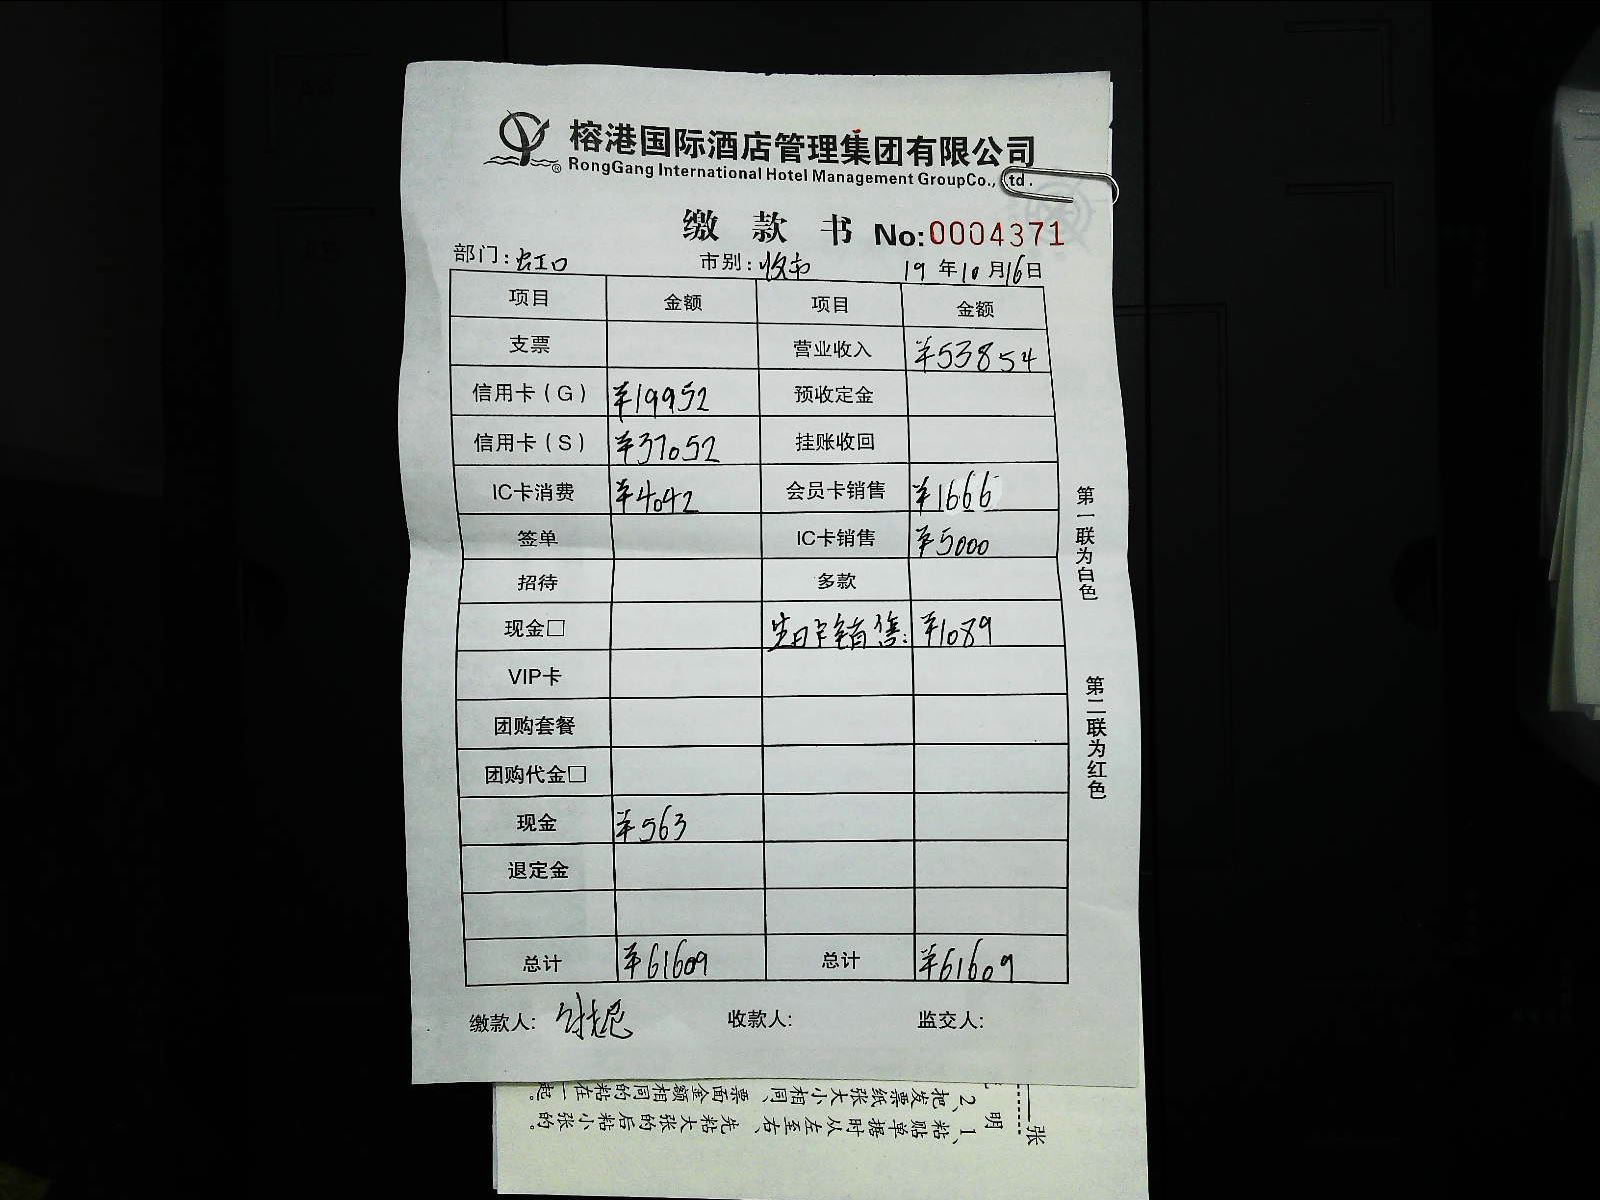 榕港国际酒店管理集团有限公司
RongGang International Hotel Management GroupCo., Ltd.
缴 款 书 No:0004371
部门:虹口 市别:收市 19年10月16日
项目 金额 项目 金额
支票 营业收入 ¥53854
信用卡(G) ¥19952 预收定金
信用卡(S) ¥37052 挂账收回
IC卡消费 ¥4042 会员卡销售 ¥1666
签单 IC卡销售 ¥5000
招待 多款
现金□ 生日卡销售: ¥1089
VIP卡
团购套餐
团购代金□
现金 ¥563
退定金
总计 ¥61609 总计 ¥61609
缴款人: 收款人: 监交人:
第一联为白色
第二联为红色
张
明
1、粘贴单据时从左至右、先粘大张的后粘小张的。
2、把发票纸张大小相同、票面金额相同的粘在一起。